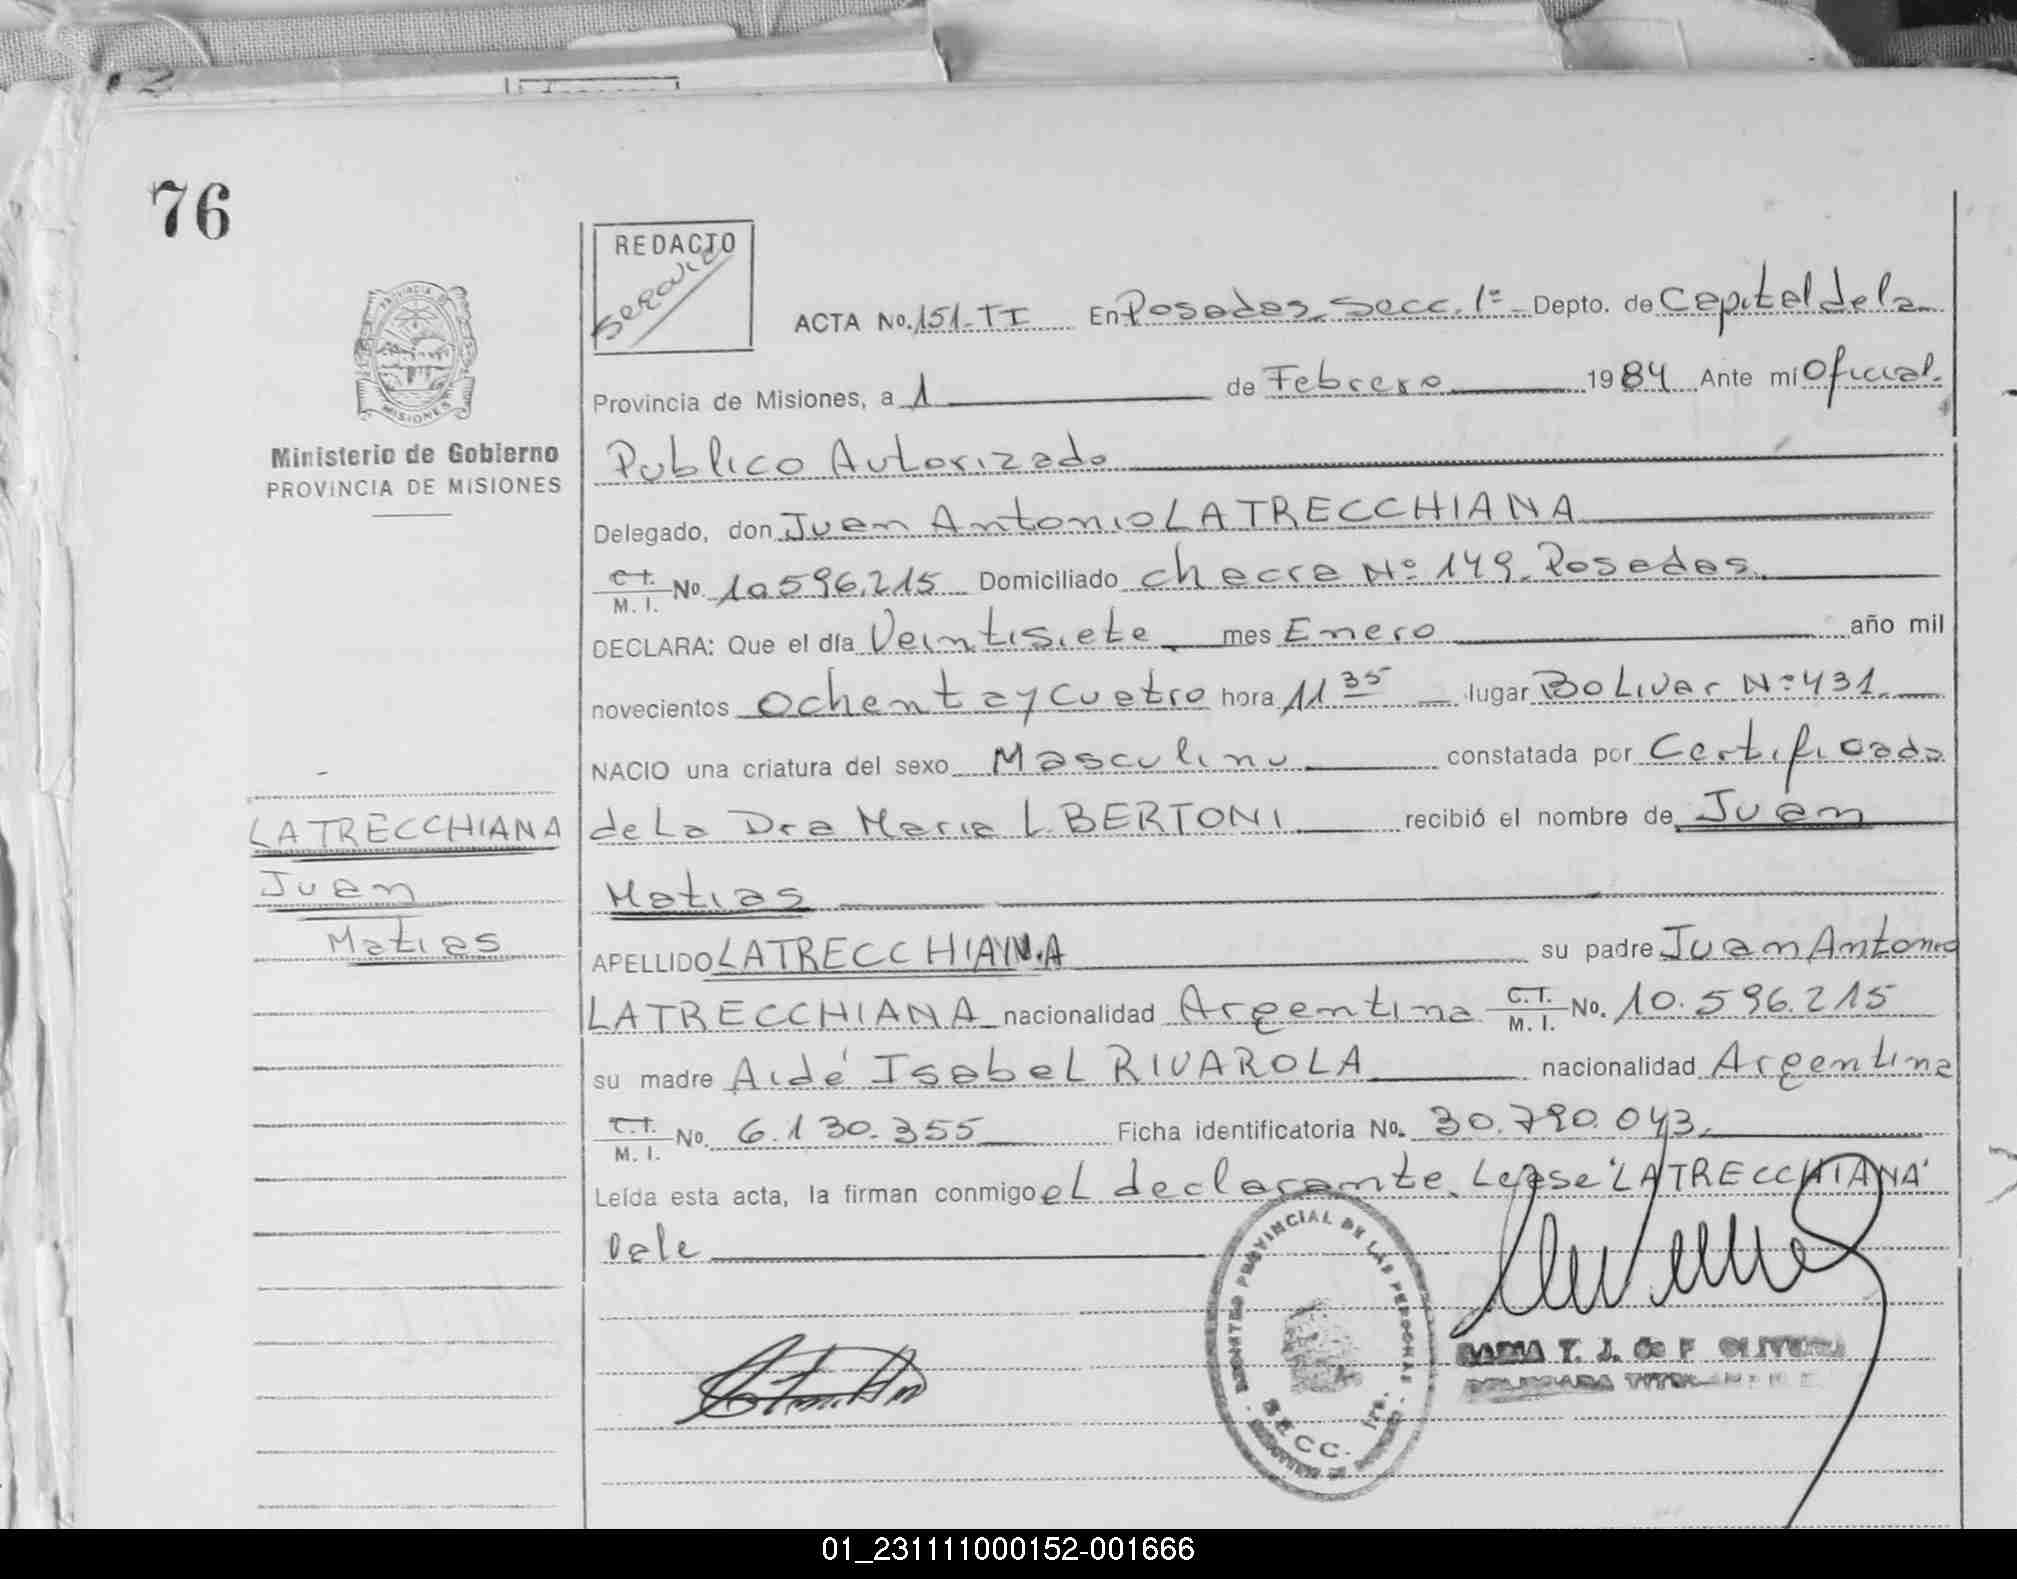 76
REDACTO
ACTA No. 151-TI En Posadas Secc. 1ª Depto. de Capital de la
Provincia de Misiones, a 1 de Febrero 1984 Ante mí Oficial
Publico Autorizado
Delegado, don Juan Antonio LATRECCHIANA
C.I. M. I. No. 10.596.215 Domiciliado Chacra Nº 149. Posadas
DECLARA: Que el día Veintisiete mes Enero año mil
novecientos Ochenta y Cuatro hora 11 35 lugar Bolivar Nº 431
NACIO una criatura del sexo Masculino constatada por Certificado
de La Dra Maria L. BERTONI recibió el nombre de Juan
Matias
APELLIDO LATRECCHIANA su padre Juan Antonio
LATRECCHIANA nacionalidad Argentina C.I. M. I. No. 10.596.215
su madre Aidé Isabel RIVAROLA nacionalidad Argentina
C.I. M. I. No. 6.130.355 Ficha identificatoria No. 30.790.043
Leída esta acta, la firman conmigo el declarante. Lease 'LATRECCHIANA'
Vale
PROVINCIA DE
MISIONES
Ministerio de Gobierno
PROVINCIA DE MISIONES
LATRECCHIANA
Juan
Matias
PROVINCIAL DE LAS PERSONAS
SECC. 1ra.
T. J. de F. OLIVEIRA
01_231111000152-001666